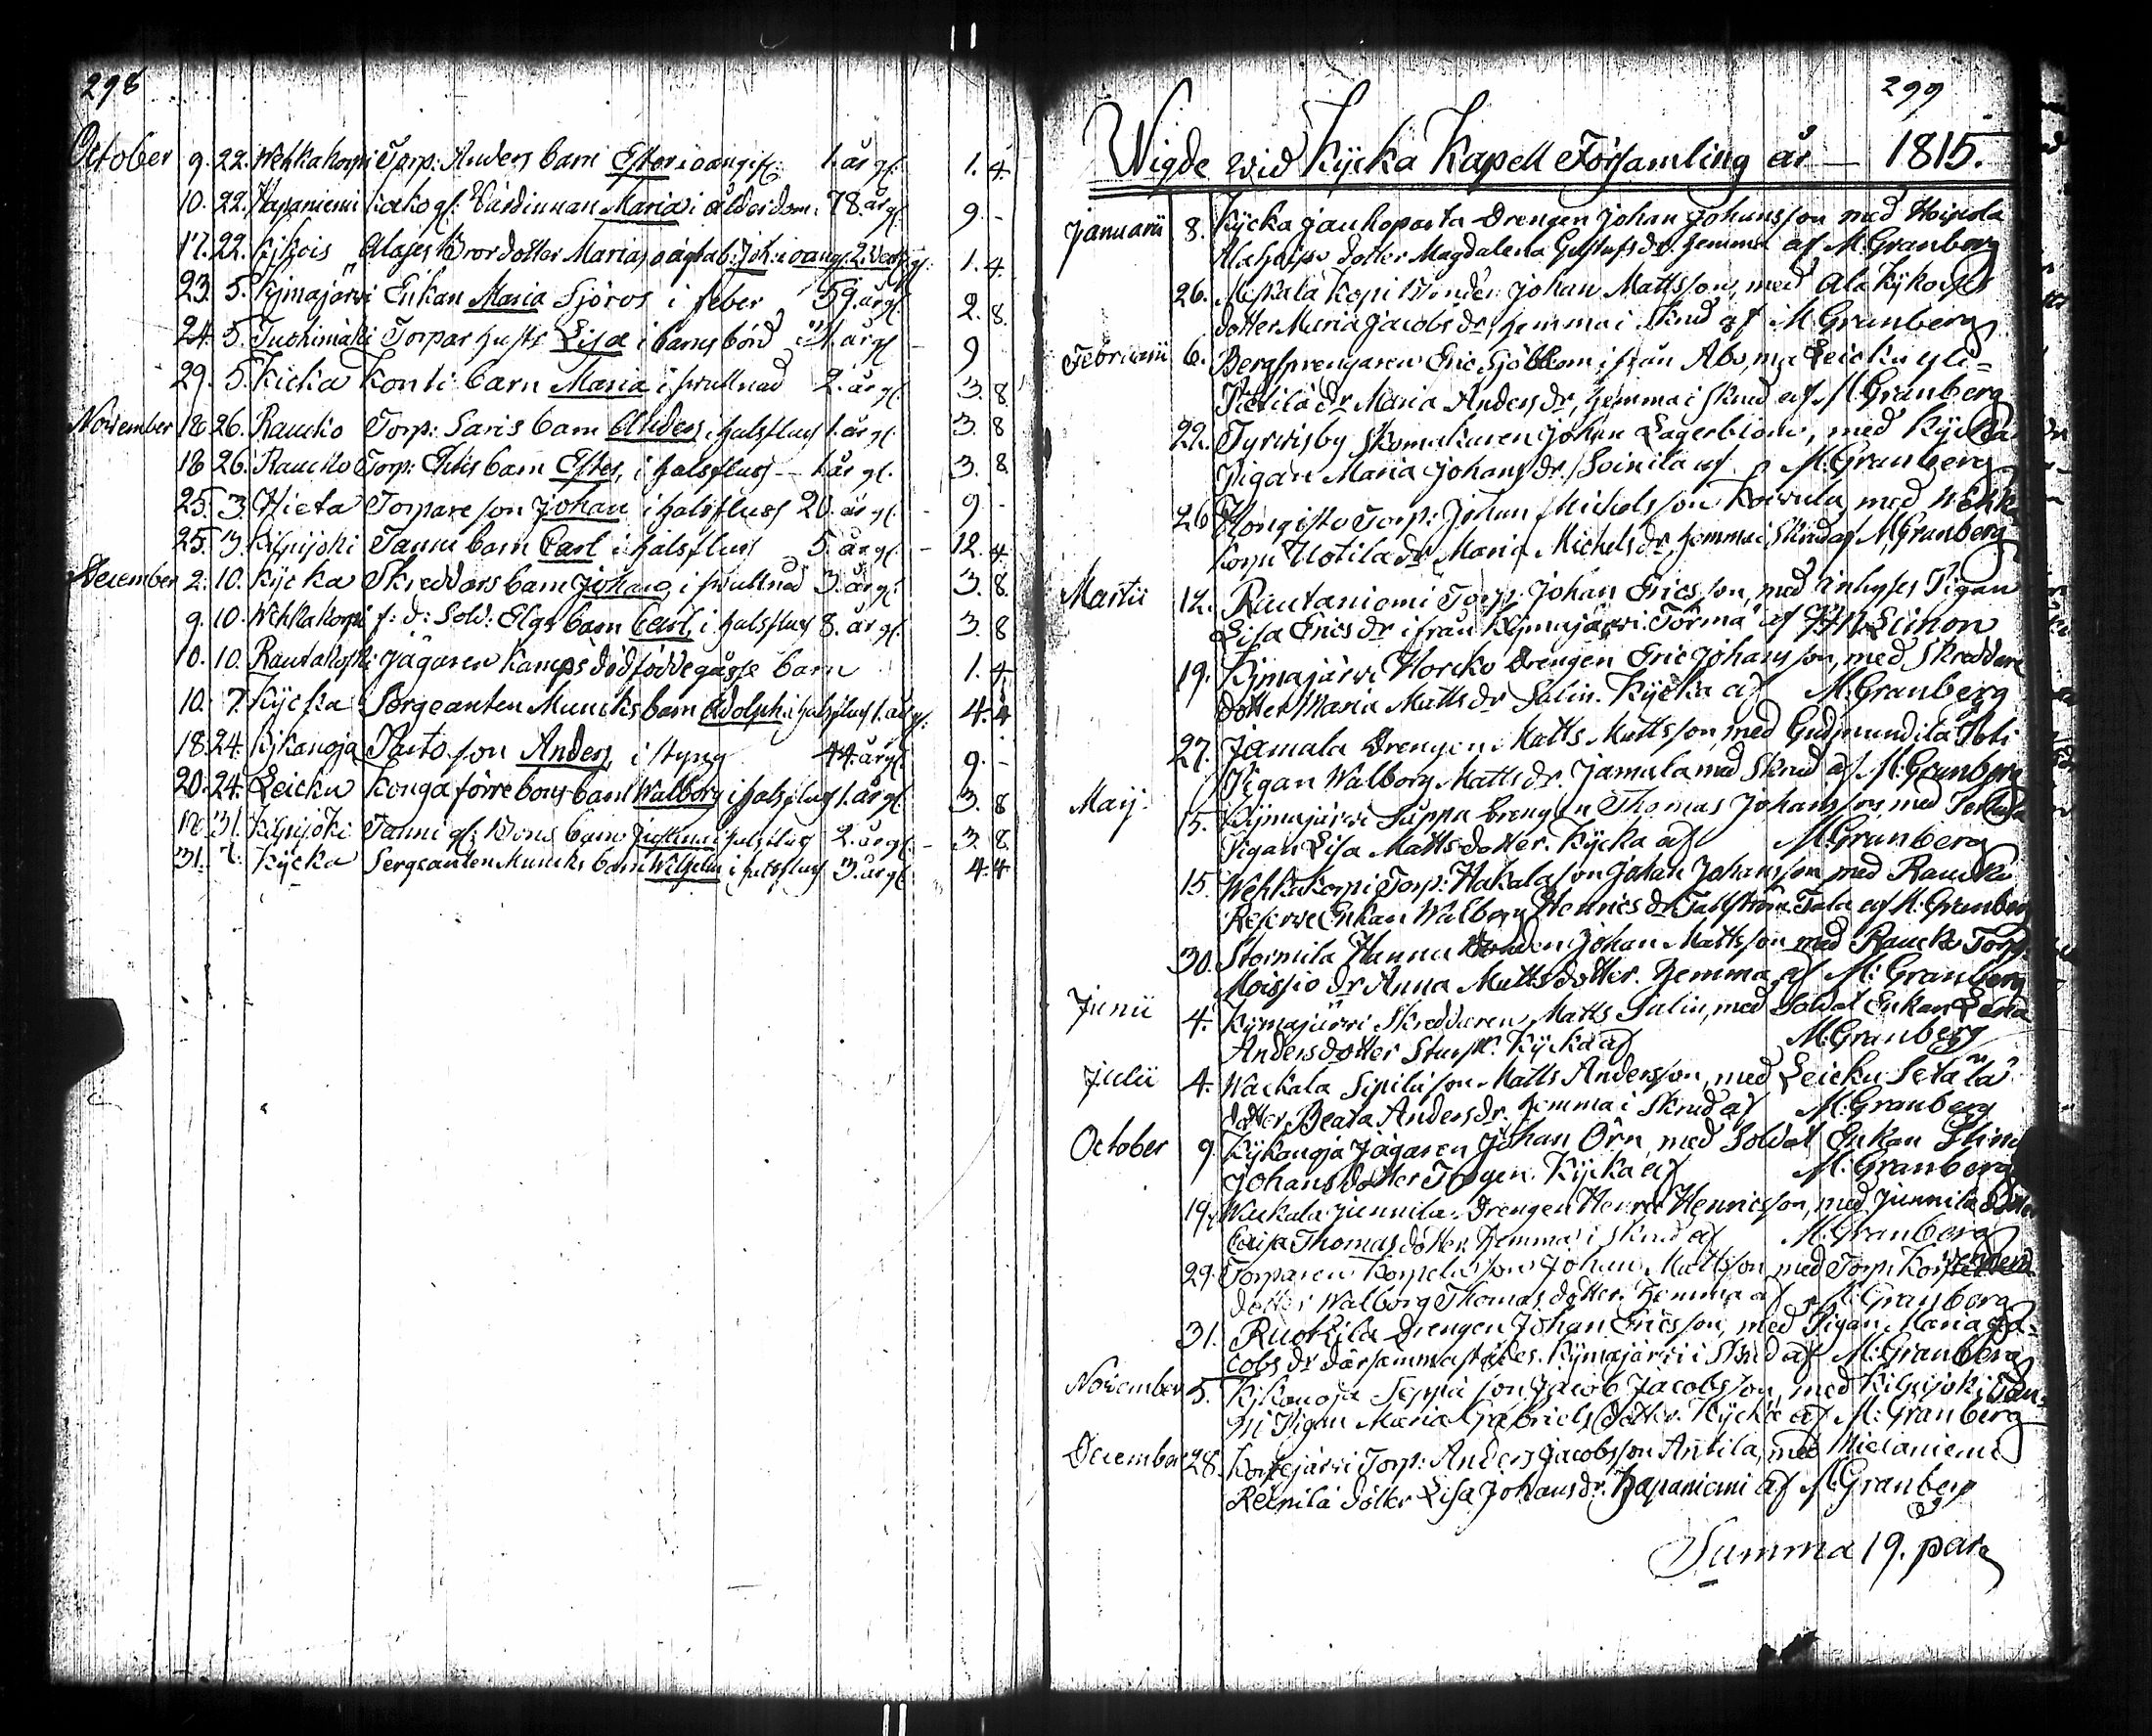 298
October 9. 22. Wehkakorpi Torp: Anders barn Ester i oangif: 1. år gl: 1. 4.
10. 22. Hapaniemi Kiako gl: Värdinnan Maria i ålderdom. 78. år gl. 9. -
17. 22. Kykois Alajes Brordotter Maria, oägta b: Joh: i oang. 2. veck gl: 1. 4.
23. 5. Kymäjärvi Enkan Maria Sjöros i feber 59. år gl. 2. 8.
24. 5. Tuohimäki Torpar hust: Lisa i barnsbörd 41. år gl - 9
29. 5. Kicka Konti barn Maria i frullnad 2. år gl. 3. 8.
November 18 26. Raucko Torp: Saris barn Anders i halsfluss 1. år gl. 3. 8
18 26. Raucko Torp: barn Ester, i halsfluss - 1. år gl. 3. 8
25. 3. Hieta Torpare son Johan i halsfluss 20. år gl. - 9 -
25. 3. Kilpijoki Tanni barn Carl i halsfluss 5. år gl. - 12. 4
December 2. 10. Kycka Skreddars barn Johan, i frullnad 3. år gl. 3. 8.
9. 10. Wehkakorpi f: d: Sold: Elgs barn Carl, i halsfluss 8. år gl. 3. 8
10. 10. Rautakoski Jägaren Kamps dödfödde gåsse barn 1. 4.
10. 7. Kycka Sergeanten Muncks barn Adolph i halsfluss 1. år gl: 4. 4
18. 24. Kykanoja Tasto son Anders, i styng 44. år gl. 9. -
20. 24. Leicku Konga förre bons barn Walborg i halsfluss 1. år gl. 3. 8
18. 31. Kilpijoki Tanni gl: Bons barn i halsfluss 2. år gl. - 3. 8.
31. 7. Kycka Sergeanten Muncks barn Wilhelm i halsfluss 3. år gl. 4. 4
299
Wigde wid Kycka Kapell Församling år — 1815.
Januarii 8. Kycka Jankoparta Drengen Johan Johansson med Hoisiola
Alaheiso dotter Magdalena Gustafs dr. hemma af M. Granberg
26. Miskala Kopi Bonden Johan Mattsson, med Ala Kykois
dotter Maria Jacobs dr, hemma i skrud af M. Granberg
Februarii 6. Bergsprengaren Eric Sjöblom ifrån Åbo, md Leicku yli=
Pietilä dr Maria Anders dr, hemma i skrud af M. Granberg
22. Tyrvisby Skomakaren Johan Lagerblom, med Kycka
Pigan Maria Johans dr. Soinila af M. Granberg
26 Hongisto Torp: Johan Michelsson Koivula, med Wehka
korpi Uotila dr Maria Michels dr, hemma i skrud af M. Granberg
Martii 12. Rautaniemi Torp: Johan Ericsson, med Inhyses Pigan
Lisa Erics dr ifrån Kymäjärvi Törmä af Leinon
19. Kymäjärvi Horcko Drengen Eric Johansson, med Skreddare
dotter Maria Matts dr Salin. Kycka af M. Granberg
27. Jamala Drengen Matts Mattsson, med Gudmundila Pohi
Pigan Walborg Matts dr. Jamala med skrud af M: Granberg
Maij. 15. Kymäjärvi Säppä Drengen Thomas Johansson, med
Pigan Lisa Matts dotter. Kycka af M: Granberg
15. Wehkakorpi Torp: Hakala son Johan Johansson med Raucko
Reserve Enkan Walborg Henrics dr Tallström. Tala af M: Granberg
30. Stormila Hannu Bonden Johan Mattsson med Raucko Torp
Moissio dr Anna Matts dotter. hemma af M: Granberg
Junii 4. Kymäjärvi Skreddaren Matts Salin, med Soldat Enkan Lena
Anders dotter Kycka af M: Granberg
Julii 4. Wackala Sipilä son Matts Andersson, med Leicku Setälä
dotter Beata Anders dr. hemma i skrud af M: Granberg
October 9 Kykanoja Jägaren Johan Örn, med Soldat Enkan Stina
Johans dotter Kycka af M: Granberg
19. Wackala Junnila Drengen Henric Henricsson, med Junnila dotter
Caisa Thomas dotter. hemma i skrud af M: Granberg
29. Torparen Korpela son Johan Mattsson med Torp:
dotter Walborg Thomas dotter. hemma af M: Granberg
31. Ruokila Drengen Johan Ericsson, med Pigan Maria Ja=
cobs dr därsammastädes. Kymäjärvi i skrud af M: Granberg
November 5. Kykanoja Seppä son Jacob Jacobsson, med Kilpijoki Tan=
ni Pigan Maria Gabriels dotter. Kycka af M: Granberg
December 28. Korpejärvi Torp: Anders Jacobsson Antila, med Mielaniemi
Reinilä dotter Lisa Johans dr. Hapaniemi af M: Granberg
Summa 19. par